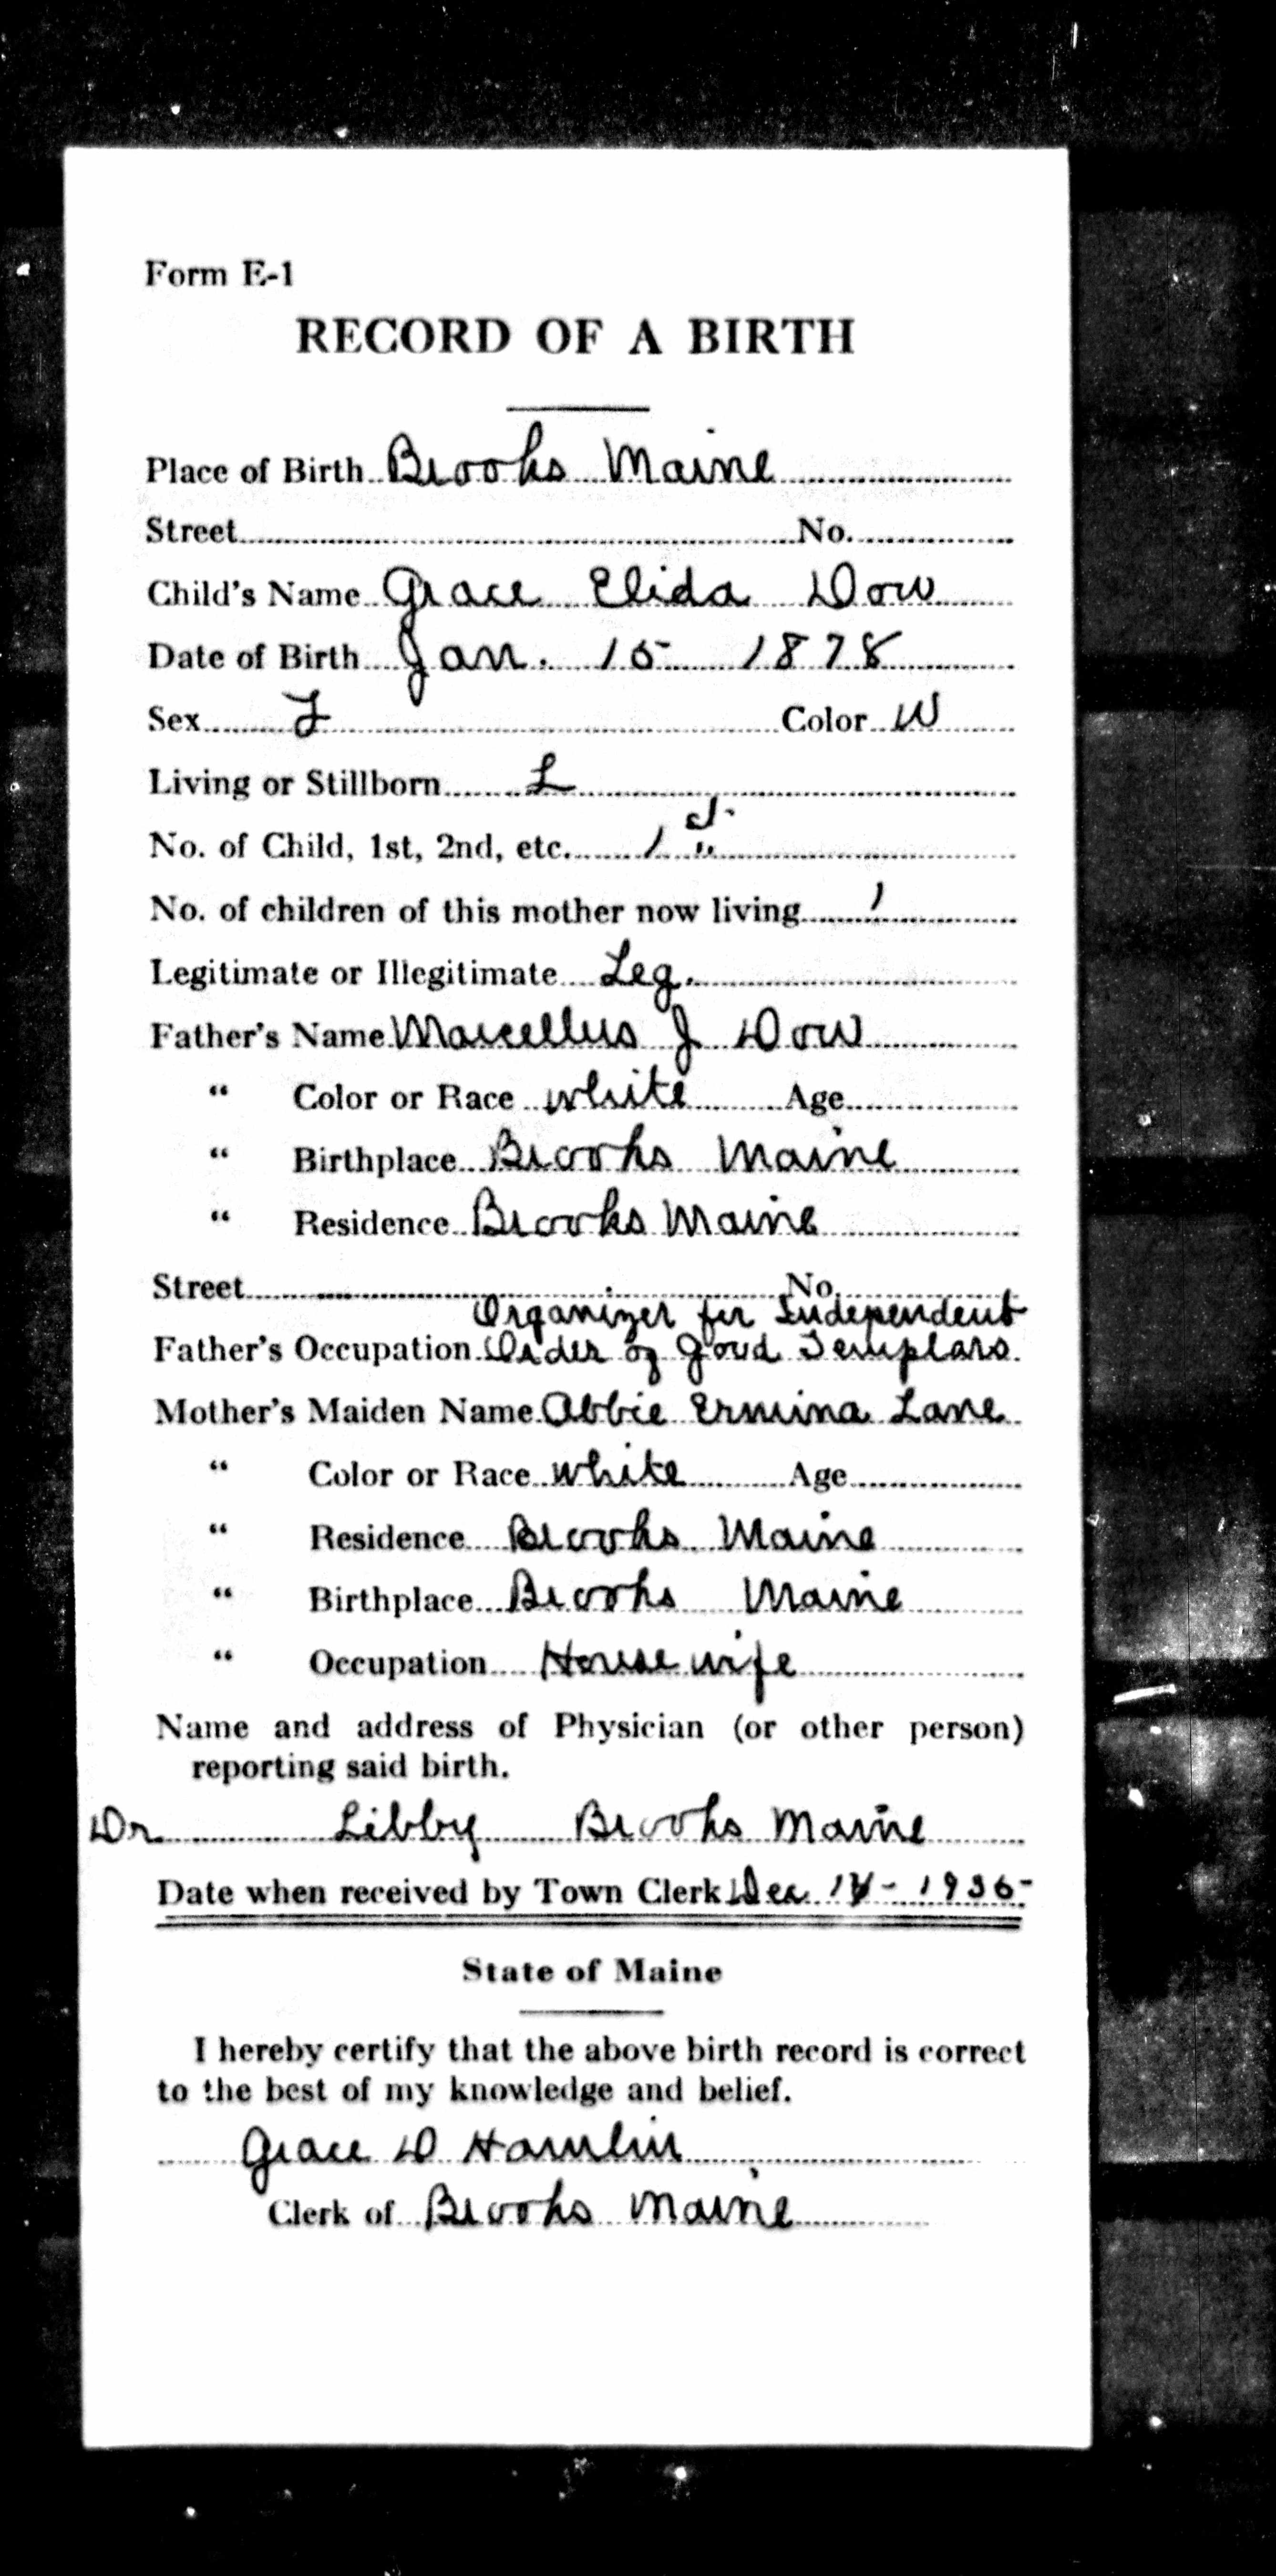 Form E-1
RECORD OF A BIRTH
Place of Birth Brooks Maine
Street No.
Child's Name Grace Elida Dow
Date of Birth Jan. 15 1878
Sex F Color W
Living or Stillborn L
No. of Child, 1st, 2nd, etc. 1st
No. of children of this mother now living 1
Legitimate or Illegitimate Leg.
Father's Name Marcellus J Dow
" Color or Race white Age
" Birthplace Brooks Maine
" Residence Brooks Maine
Street No.
Organizer for Independent
Father's Occupation Order of Good Templars.
Mother's Maiden Name Abbie Ermina Lane
" Color or Race white Age
" Residence Brooks Maine
" Birthplace Brooks Maine
" Occupation House wife
Name and address of Physician (or other person)
reporting said birth.
Dr Libby Brooks Maine
Date when received by Town Clerk Dec 1936
State of Maine
I hereby certify that the above birth record is correct
to the best of my knowledge and belief.
Grace D Hamlin
Clerk of Brooks Maine